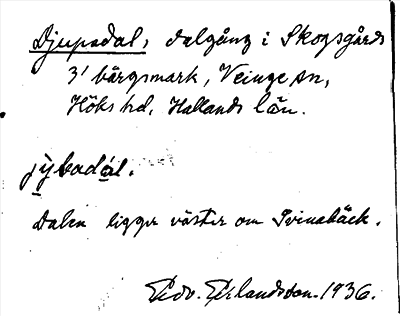 Djupadal, dalgång i Skogsgårds
3' bärgsmark, Veinge sn,
Höks hd, Hallands län.
jybadál.
Dalen ligger väster om Svinabäck.
Edv. Erlandsson. 1936.